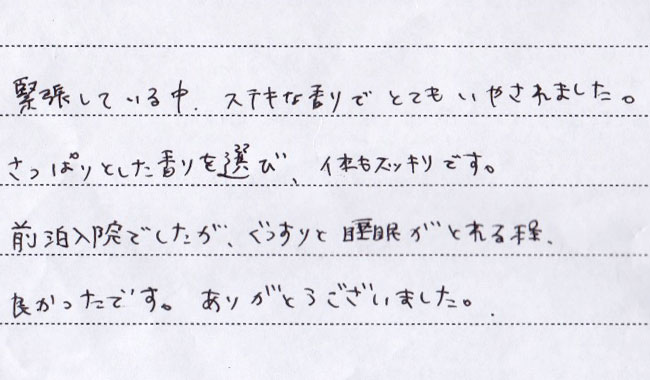 緊張している中、ステキな香りでとてもいやされました。
さっぱりとした香りを選び、体もスッキリです。
前泊入院でしたが、ぐっすりと睡眠がとれる程、
良かったです。ありがとうございました。